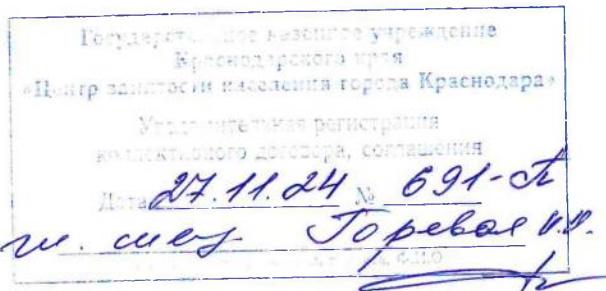 Государственное казенное учреждение
Краснодарского края
«Центр занятости населения города Краснодара»
Уведомительная регистрация
коллективного договора, соглашения
Дата 27.11.24 № 691-П
Горевая